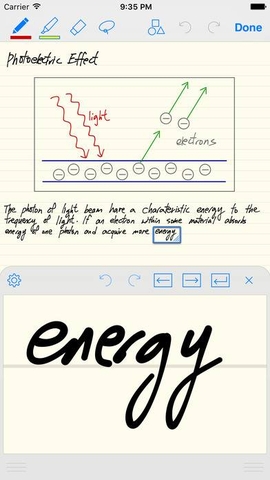 Carrier
9:35 PM
Done
Photoelectric Effect
light
electrons
The photon of light beam have a charateristic energy to the
frequency of light. If an electron within some material absorbs
energy of one photon and acquire more energy
energy